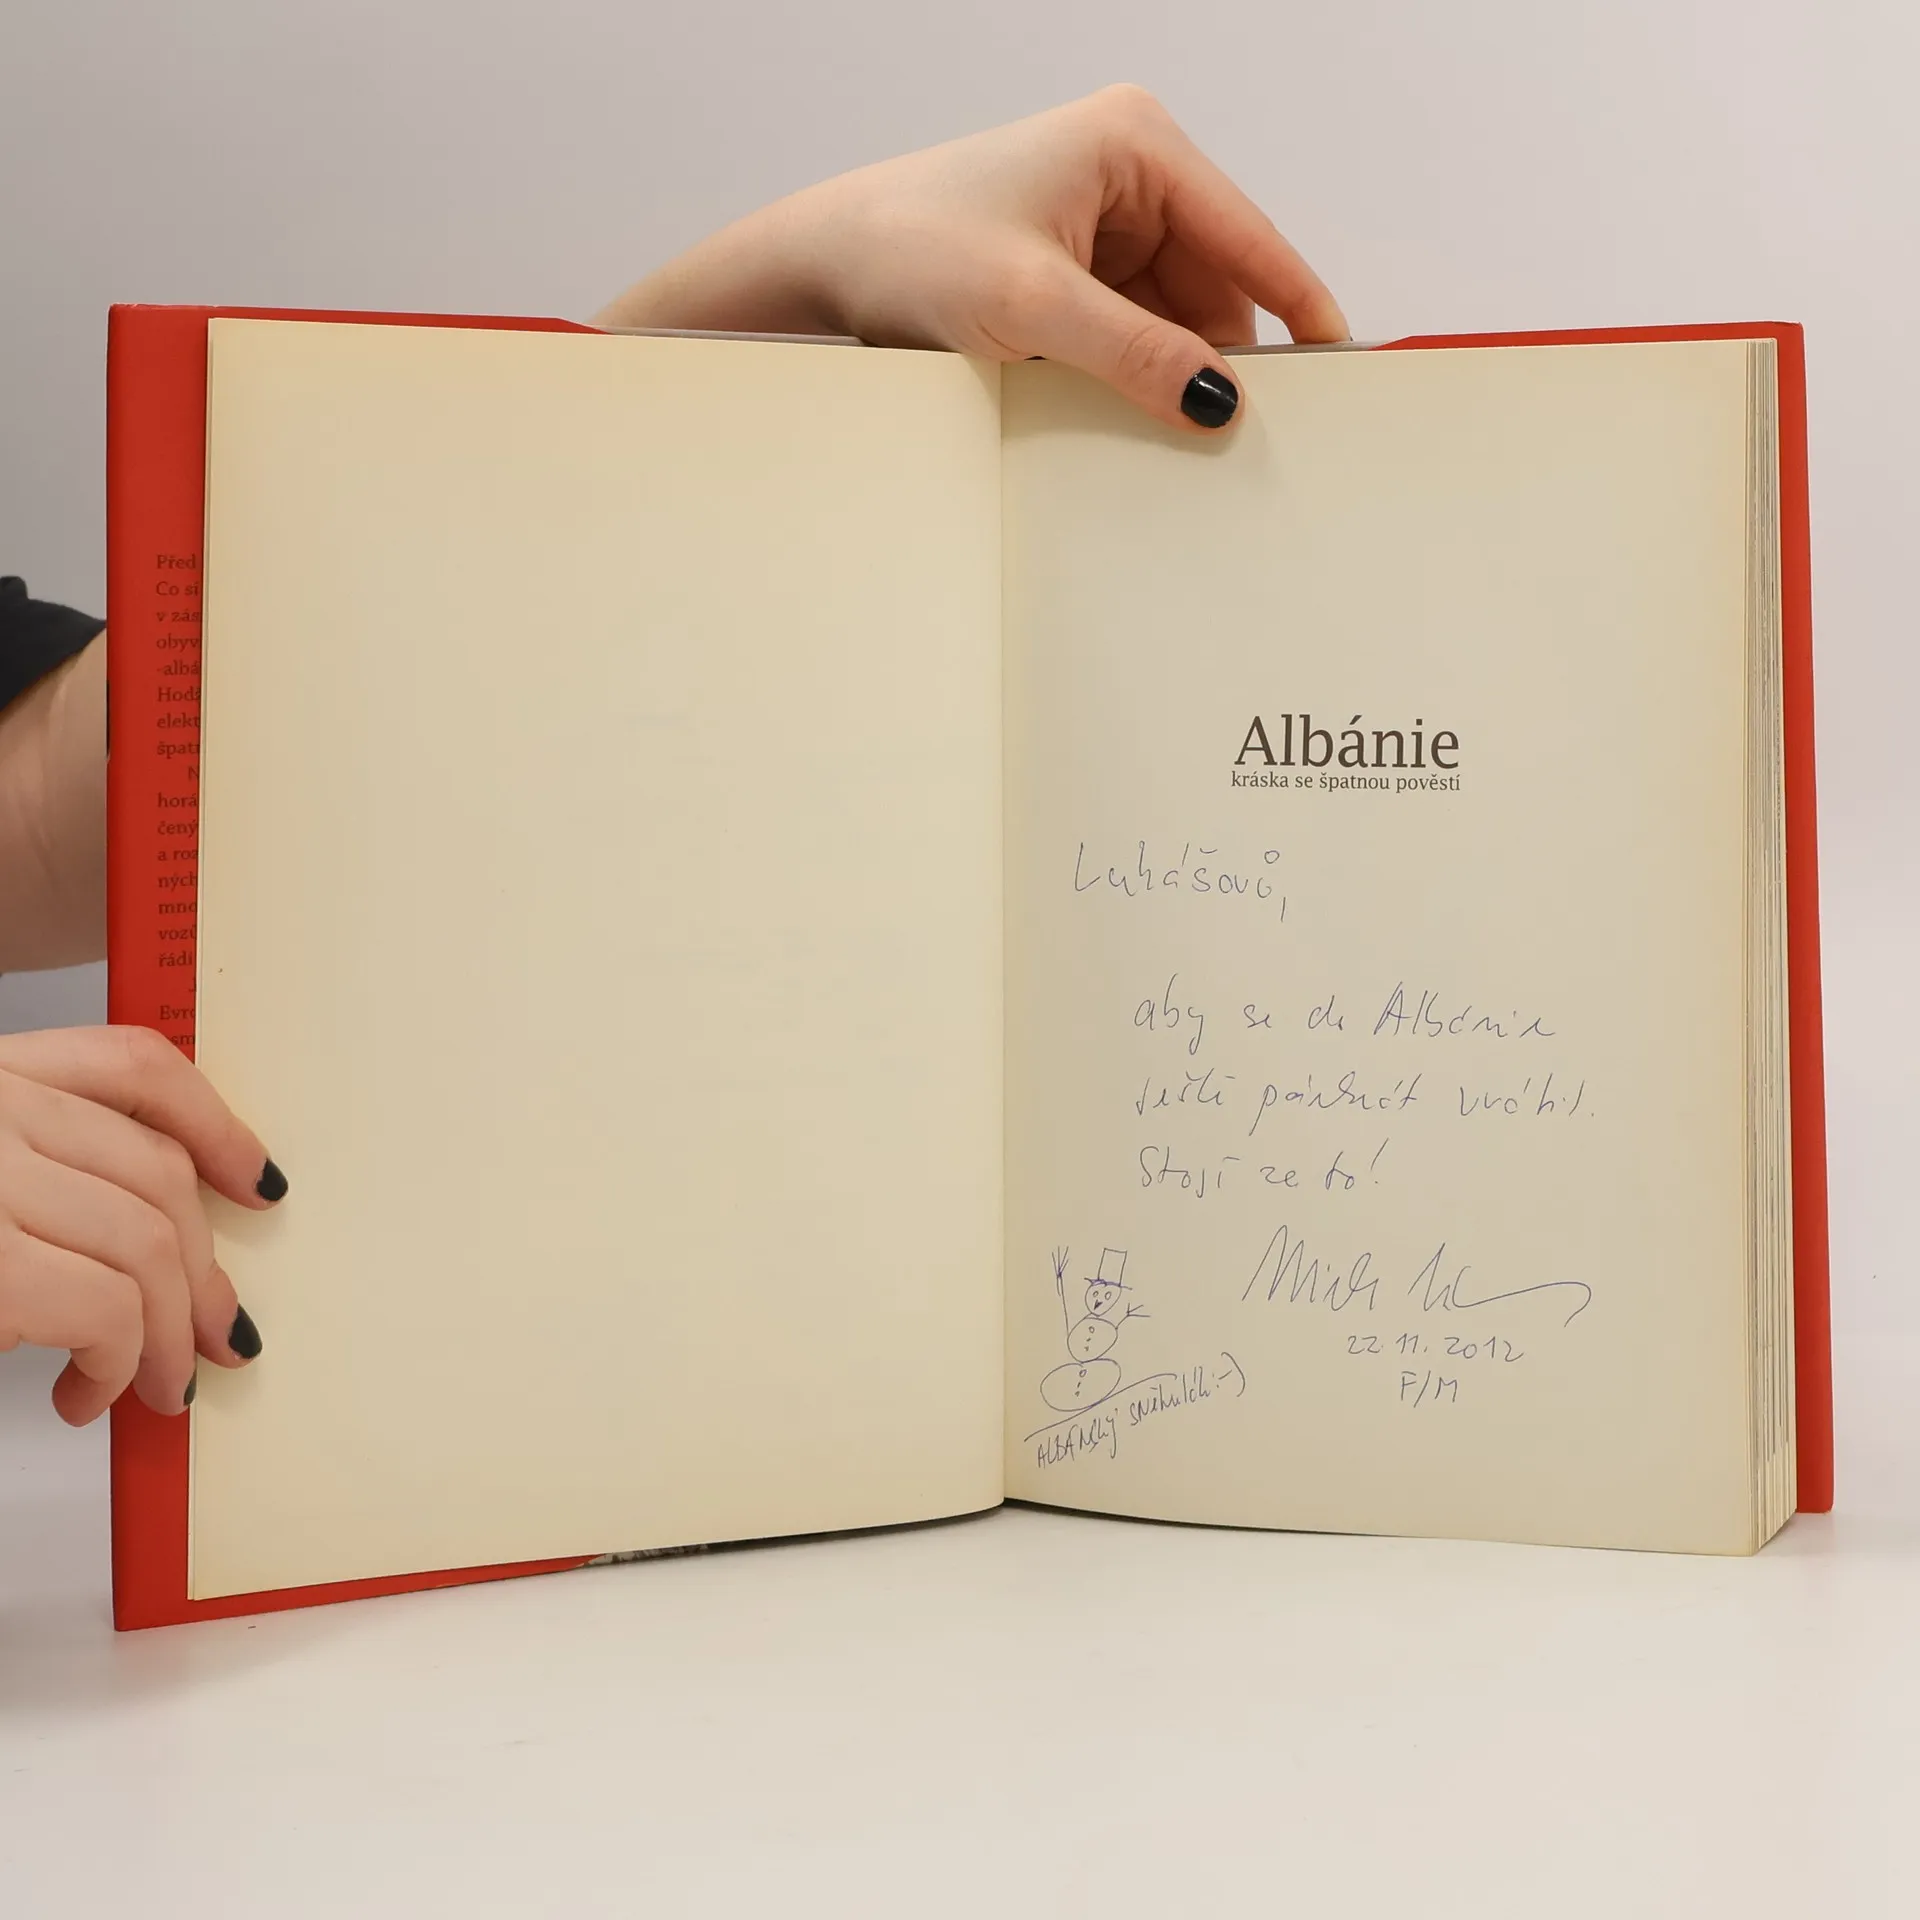 Před
Co si
v zás
obyv
-albá
Hodž
elekt
špatn
N
horá
čený
a roz
ných
mno
vozů
řádi
J
Evro
sm
Albánie
kráska se špatnou pověstí
Lukášovů,
aby se do Albánie
ještě párkrát vrátil.
Stojí za to!
22.11.2012
F/M
ALBÁNSKÝ SNĚHULÁK :-)